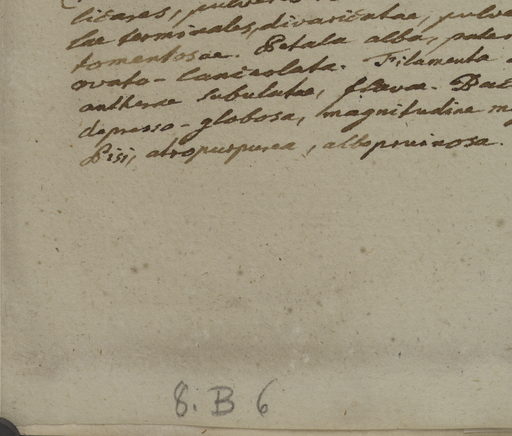 licares, pulver
lae terminales, divaricatae, pulve
tomentosae. Petala alba, pate
ovato-lanceolata. Filamenta
antherae subulatae, flavae. Bac
depresso-globosa, magnitudine m
Pisi, atropurpurea, albopruinosa.
8. B 6